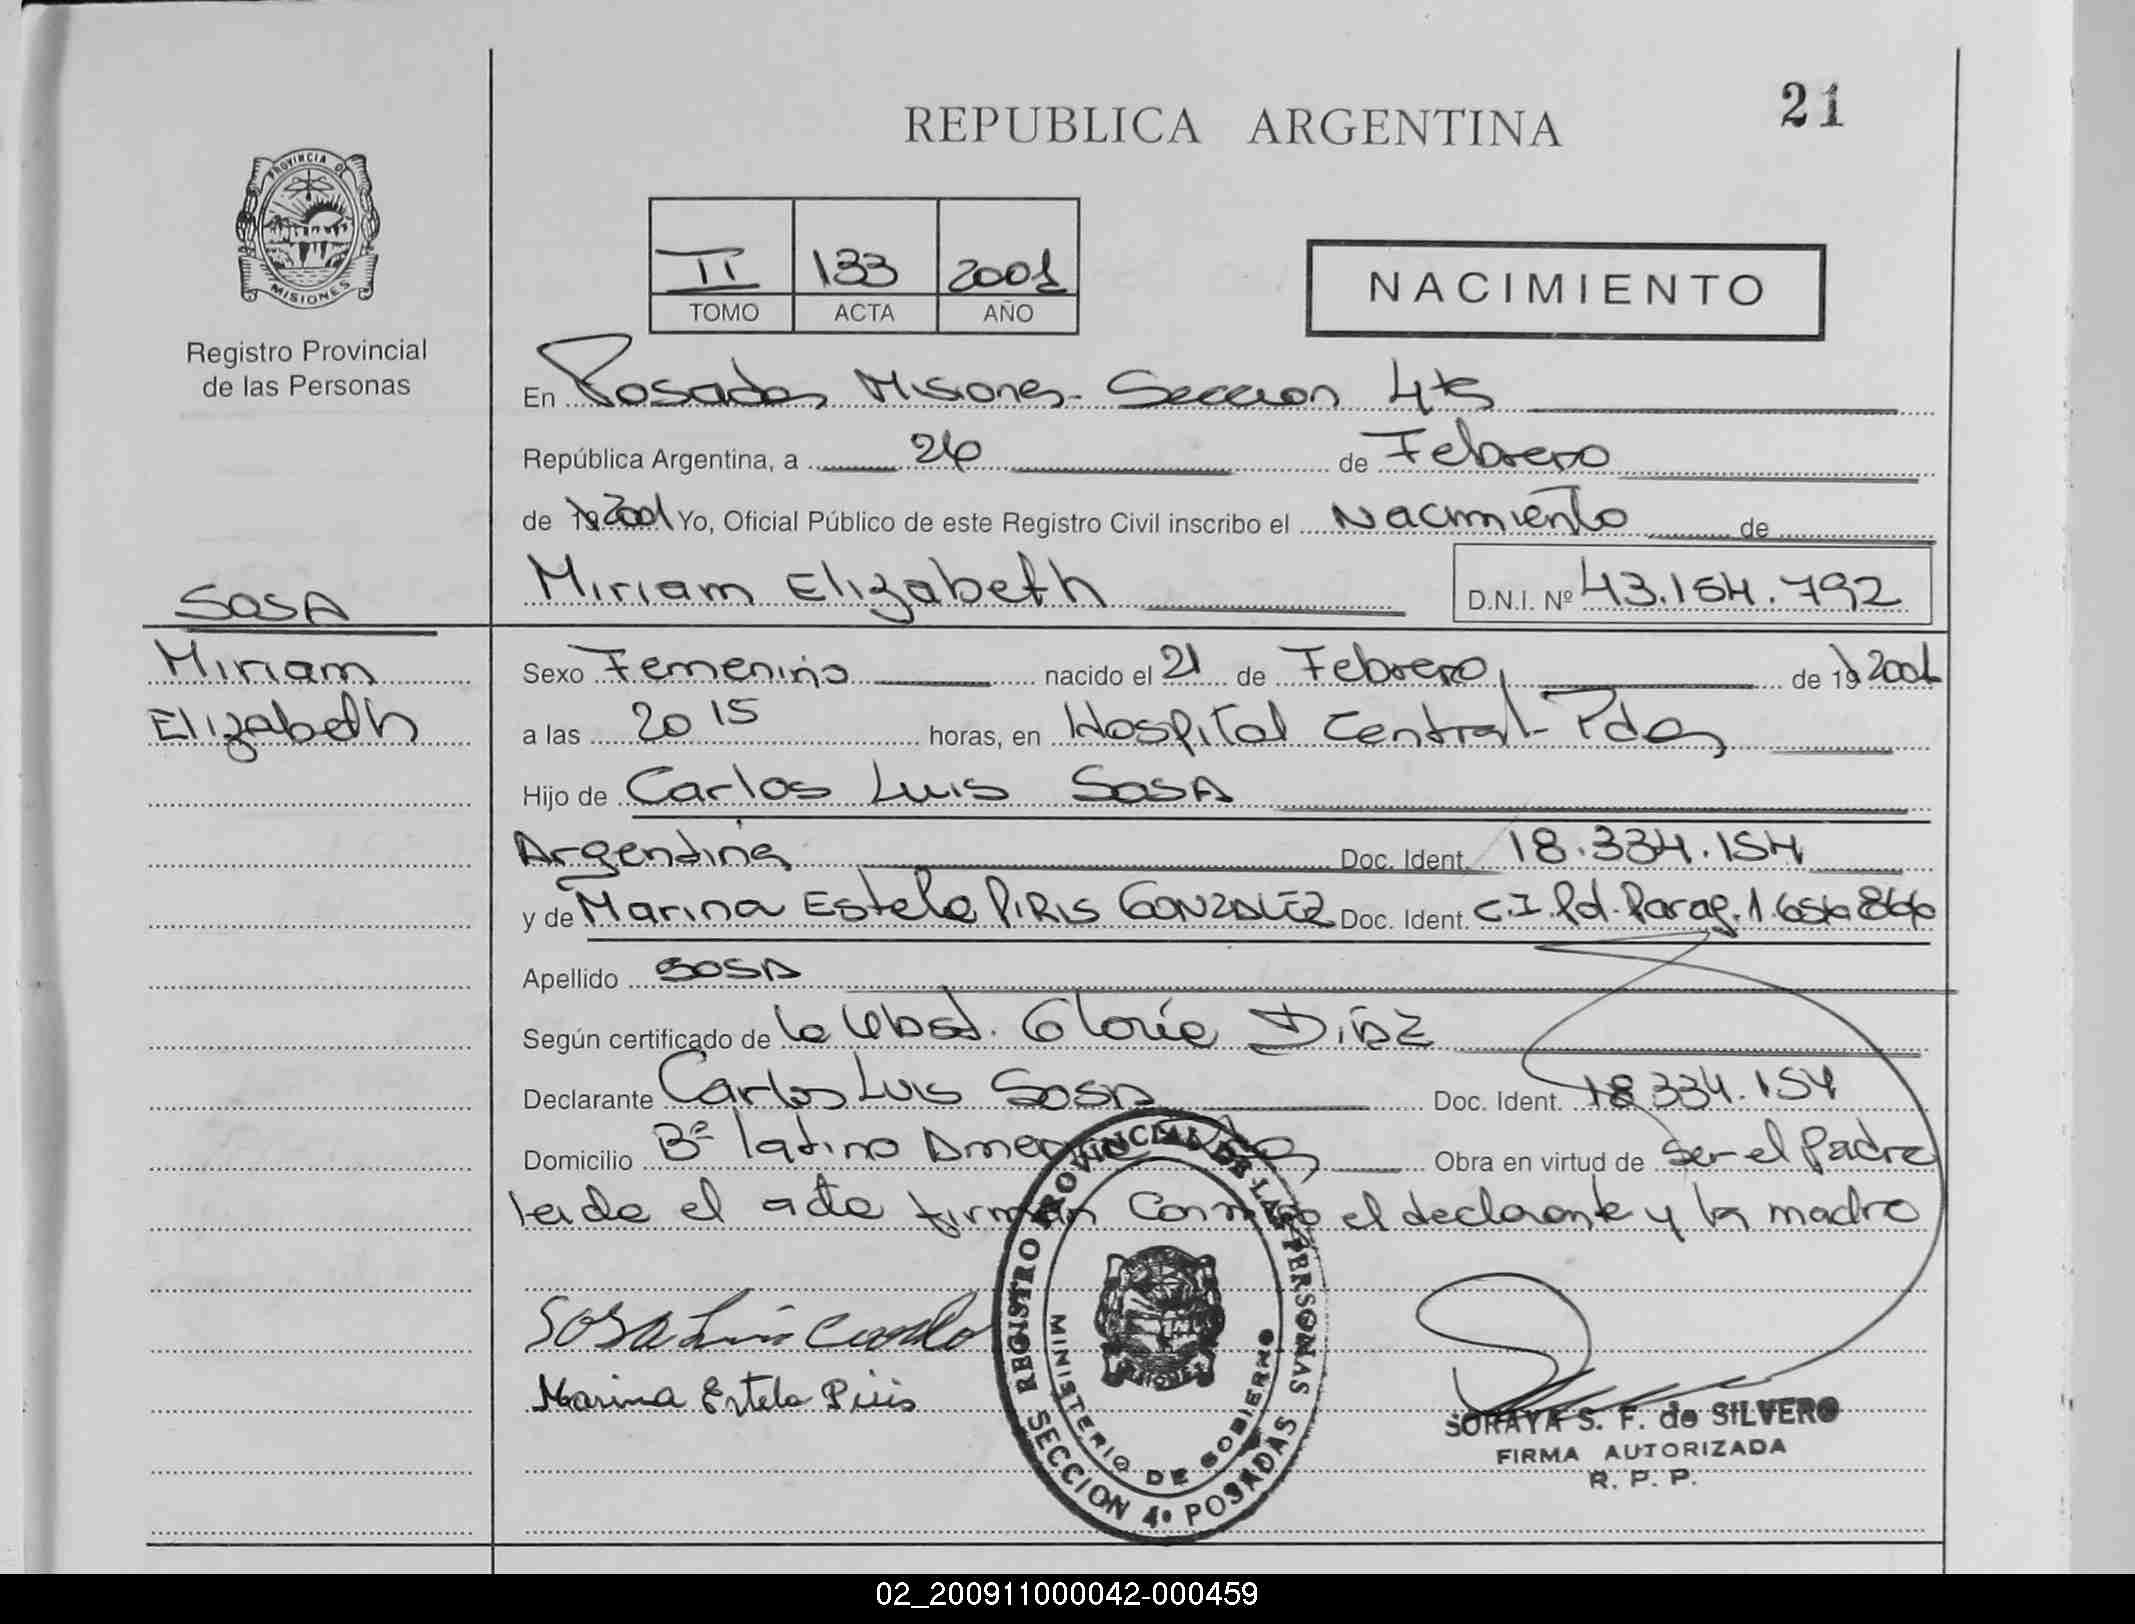 21
REPUBLICA ARGENTINA
PROVINCIA DE
MISIONES
Registro Provincial
de las Personas
II 133 2001
TOMO ACTA AÑO
NACIMIENTO
En Posadas Misiones- Seccion 4ta
República Argentina, a 26 de Febrero
de 19 2001 Yo, Oficial Público de este Registro Civil inscribo el Nacimiento de
Miriam Elizabeth D.N.I. Nº 43.154.792
SOSA
Miriam
Elizabeth
Sexo Femenino nacido el 21 de Febrero de 19 2001
a las 20 15 horas, en Hospital Central- Pdas
Hijo de Carlos Luis SOSA
Argentina Doc. Ident. 18.334.154
y de Marina Estela PIRIS GONZALEZ Doc. Ident. C.I. Pol. Parag. 1.656
Apellido SOSA
Según certificado de la Obst. Gloria Díaz
Declarante Carlos Luis Sosa Doc. Ident. 18.334.154
Domicilio Bº latino Obra en virtud de Ser el Padre
leida el acta firman Conmigo el declarante y la madre
Sosa Luis Carlo
Marina Estela Piris
REGISTRO PROVINCIAL DE LAS PERSONAS
MINISTERIO DE GOBIERNO
SECCION 4º POSADAS
SORAYA S. F. de SILVERO
FIRMA AUTORIZADA
R. P. P.
02_200911000042-000459